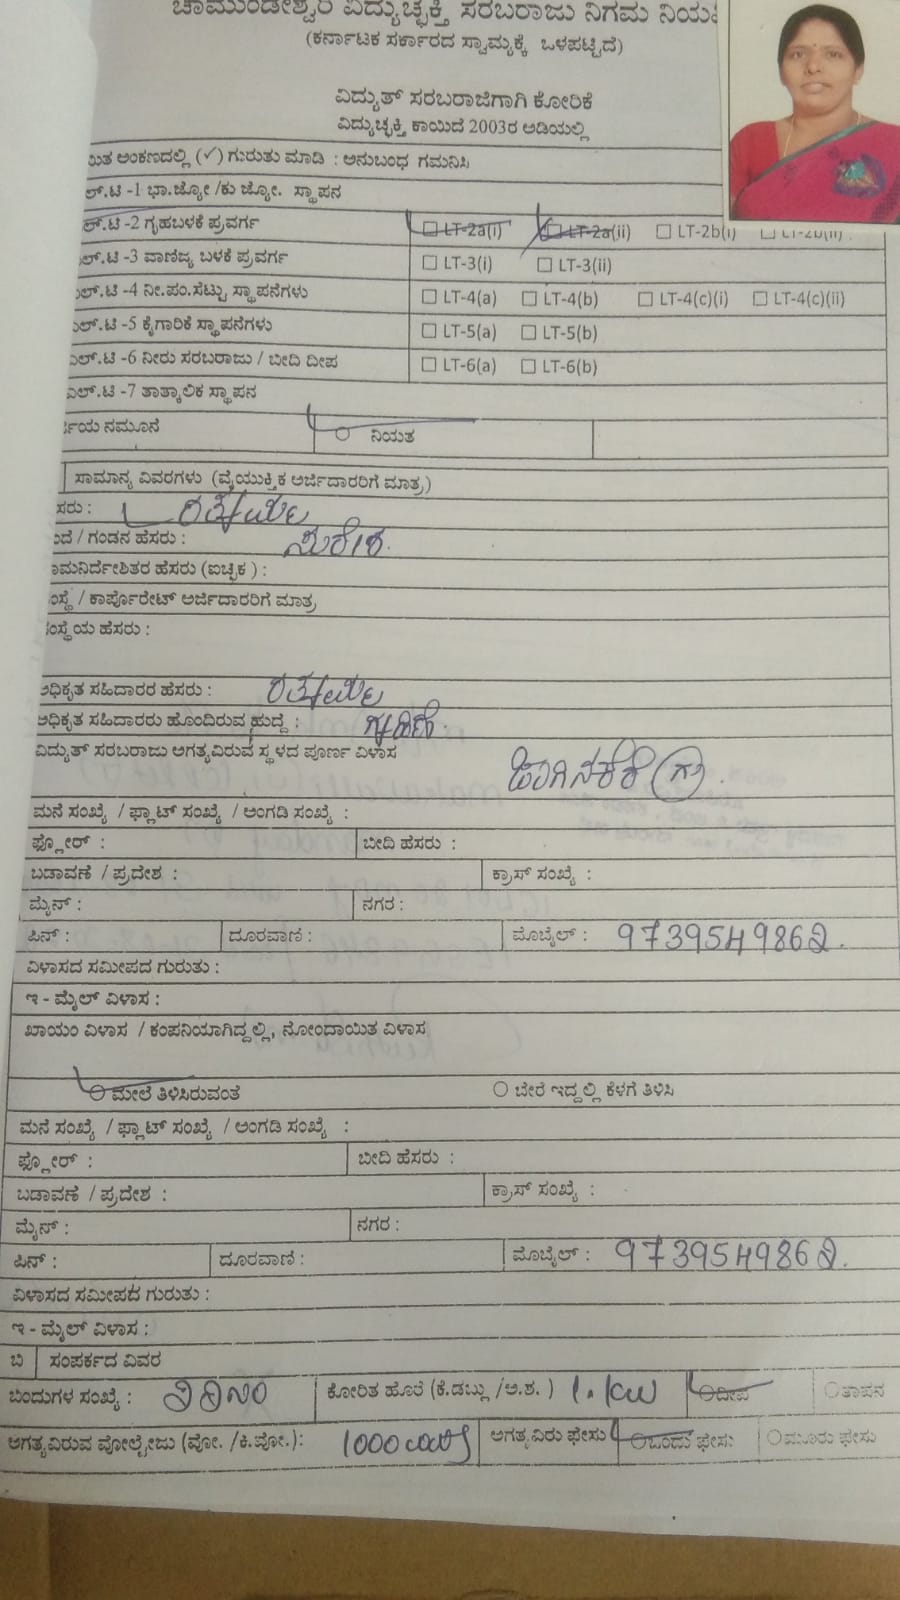 ಚಾಮುಂಡೇಶ್ವರಿ ವಿದ್ಯುಚ್ಛಕ್ತಿ ಸರಬರಾಜು ನಿಗಮ ನಿಯ
(ಕರ್ನಾಟಕ ಸರ್ಕಾರದ ಸ್ವಾಮ್ಯಕ್ಕೆ ಒಳಪಟ್ಟಿದೆ)
ವಿದ್ಯುತ್ ಸರಬರಾಜಿಗಾಗಿ ಕೋರಿಕೆ
ವಿದ್ಯುಚ್ಛಕ್ತಿ ಕಾಯಿದೆ 2003ರ ಅಡಿಯಲ್ಲಿ
ಯಿತ ಅಂಕಣದಲ್ಲಿ (✓) ಗುರುತು ಮಾಡಿ : ಅನುಬಂಧ ಗಮನಿಸಿ
ಲ್.ಟಿ -1 ಭಾ.ಜ್ಯೋ /ಕು ಜ್ಯೋ. ಸ್ಥಾಪನ
ಲ್.ಟಿ -2 ಗೃಹಬಳಕೆ ಪ್ರವರ್ಗ ☐ LT-2a(i) ☐ LT-2a(ii) ☐ LT-2b(i) ☐ LT-2b(ii)
ಲ್.ಟಿ -3 ವಾಣಿಜ್ಯ ಬಳಕೆ ಪ್ರವರ್ಗ ☐ LT-3(i) ☐ LT-3(ii)
ಲ್.ಟಿ -4 ನೀ.ಪಂ.ಸೆಟ್ಟು ಸ್ಥಾಪನೆಗಳು ☐ LT-4(a) ☐ LT-4(b) ☐ LT-4(c)(i) ☐ LT-4(c)(ii)
ಲ್.ಟಿ -5 ಕೈಗಾರಿಕೆ ಸ್ಥಾಪನೆಗಳು ☐ LT-5(a) ☐ LT-5(b)
ಎಲ್.ಟಿ -6 ನೀರು ಸರಬರಾಜು / ಬೀದಿ ದೀಪ ☐ LT-6(a) ☐ LT-6(b)
ಎಲ್.ಟಿ -7 ತಾತ್ಕಾಲಿಕ ಸ್ಥಾಪನ
ರ್ಜಿಯ ನಮೂನೆ ○ ನಿಯತ
ಸಾಮಾನ್ಯ ವಿವರಗಳು (ವೈಯುಕ್ತಿಕ ಅರ್ಜಿದಾರರಿಗೆ ಮಾತ್ರ)
ಸರು :
ಂದೆ / ಗಂಡನ ಹೆಸರು : ಸುರೇಶ.
ಾಮನಿರ್ದೇಶಿತರ ಹೆಸರು (ಐಚ್ಛಿಕ ) :
ಂಸ್ಥೆ / ಕಾರ್ಪೊರೇಟ್ ಅರ್ಜಿದಾರರಿಗೆ ಮಾತ್ರ
ಸಂಸ್ಥೆಯ ಹೆಸರು :
ಅಧಿಕೃತ ಸಹಿದಾರರ ಹೆಸರು :
ಅಧಿಕೃತ ಸಹಿದಾರರು ಹೊಂದಿರುವ ಹುದ್ದೆ : ಗೃಹಿಣಿ.
ವಿದ್ಯುತ್ ಸರಬರಾಜು ಅಗತ್ಯವಿರುವ ಸ್ಥಳದ ಪೂರ್ಣ ವಿಳಾಸ
ಮನೆ ಸಂಖ್ಯೆ / ಫ್ಲಾಟ್ ಸಂಖ್ಯೆ / ಅಂಗಡಿ ಸಂಖ್ಯೆ :
ಫ್ಲೋರ್ : ಬೀದಿ ಹೆಸರು :
ಬಡಾವಣೆ / ಪ್ರದೇಶ : ಕ್ರಾಸ್ ಸಂಖ್ಯೆ :
ಮೈನ್ : ನಗರ :
ಪಿನ್ : ದೂರವಾಣಿ : ಮೊಬೈಲ್ : 9739549862.
ವಿಳಾಸದ ಸಮೀಪದ ಗುರುತು :
ಇ - ಮೈಲ್ ವಿಳಾಸ :
ಖಾಯಂ ವಿಳಾಸ / ಕಂಪನಿಯಾಗಿದ್ದಲ್ಲಿ, ನೋಂದಾಯಿತ ವಿಳಾಸ
○ ಮೇಲೆ ತಿಳಿಸಿರುವಂತೆ ○ ಬೇರೆ ಇದ್ದಲ್ಲಿ ಕೆಳಗೆ ತಿಳಿಸಿ
ಮನೆ ಸಂಖ್ಯೆ / ಫ್ಲಾಟ್ ಸಂಖ್ಯೆ / ಅಂಗಡಿ ಸಂಖ್ಯೆ :
ಫ್ಲೋರ್ : ಬೀದಿ ಹೆಸರು :
ಬಡಾವಣೆ / ಪ್ರದೇಶ : ಕ್ರಾಸ್ ಸಂಖ್ಯೆ :
ಮೈನ್ : ನಗರ :
ಪಿನ್ : ದೂರವಾಣಿ : ಮೊಬೈಲ್ : 9739549862.
ವಿಳಾಸದ ಸಮೀಪದ ಗುರುತು :
ಇ - ಮೈಲ್ ವಿಳಾಸ :
ಬಿ ಸಂಪರ್ಕದ ವಿವರ
ಬಿಂದುಗಳ ಸಂಖ್ಯೆ : ಕೋರಿತ ಹೊರೆ (ಕೆ.ಡಬ್ಲು /ಅ.ಶ. ) 1.KW ○ದೀಪ ○ತಾಪನ
ಅಗತ್ಯವಿರುವ ವೋಲ್ಟೇಜು (ವೋ. /ಕಿ.ವೋ.): 1000 ಅಗತ್ಯವಿರು ಫೇಸು ○ಒಂದು ಫೇಸು ○ಮೂರು ಫೇಸು